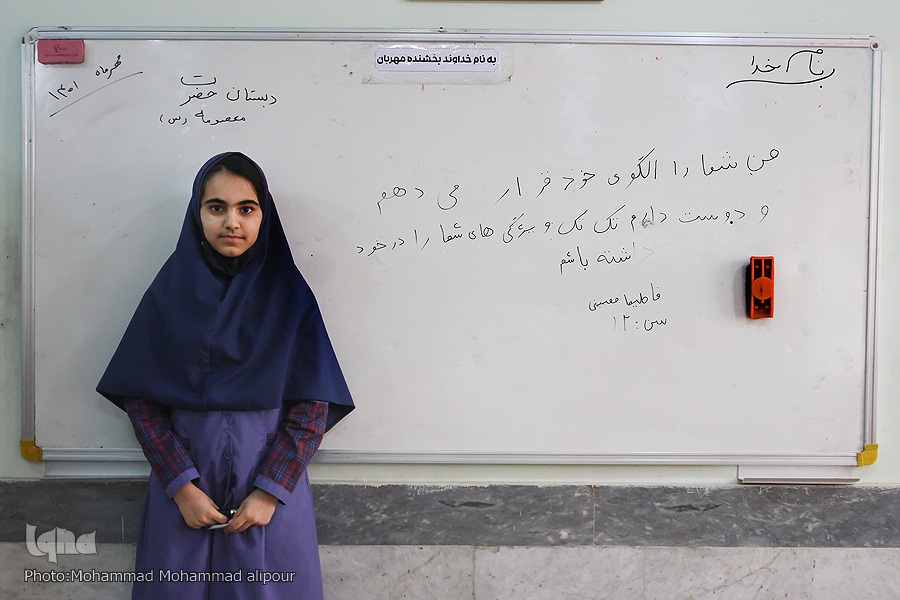 به نام خداوند بخشنده مهربان
بنام خدا
مهرماه ۱۴۰۱
دبستان حضرت
معصومه (س)
من شما را الگوی خود قرار می دهم
و دوست دارم تک تک ویژگی های شما را در خود
داشته باشم
فاطیما معینی
سن: ۱۲
Iqna
Photo:Mohammad Mohammad alipour